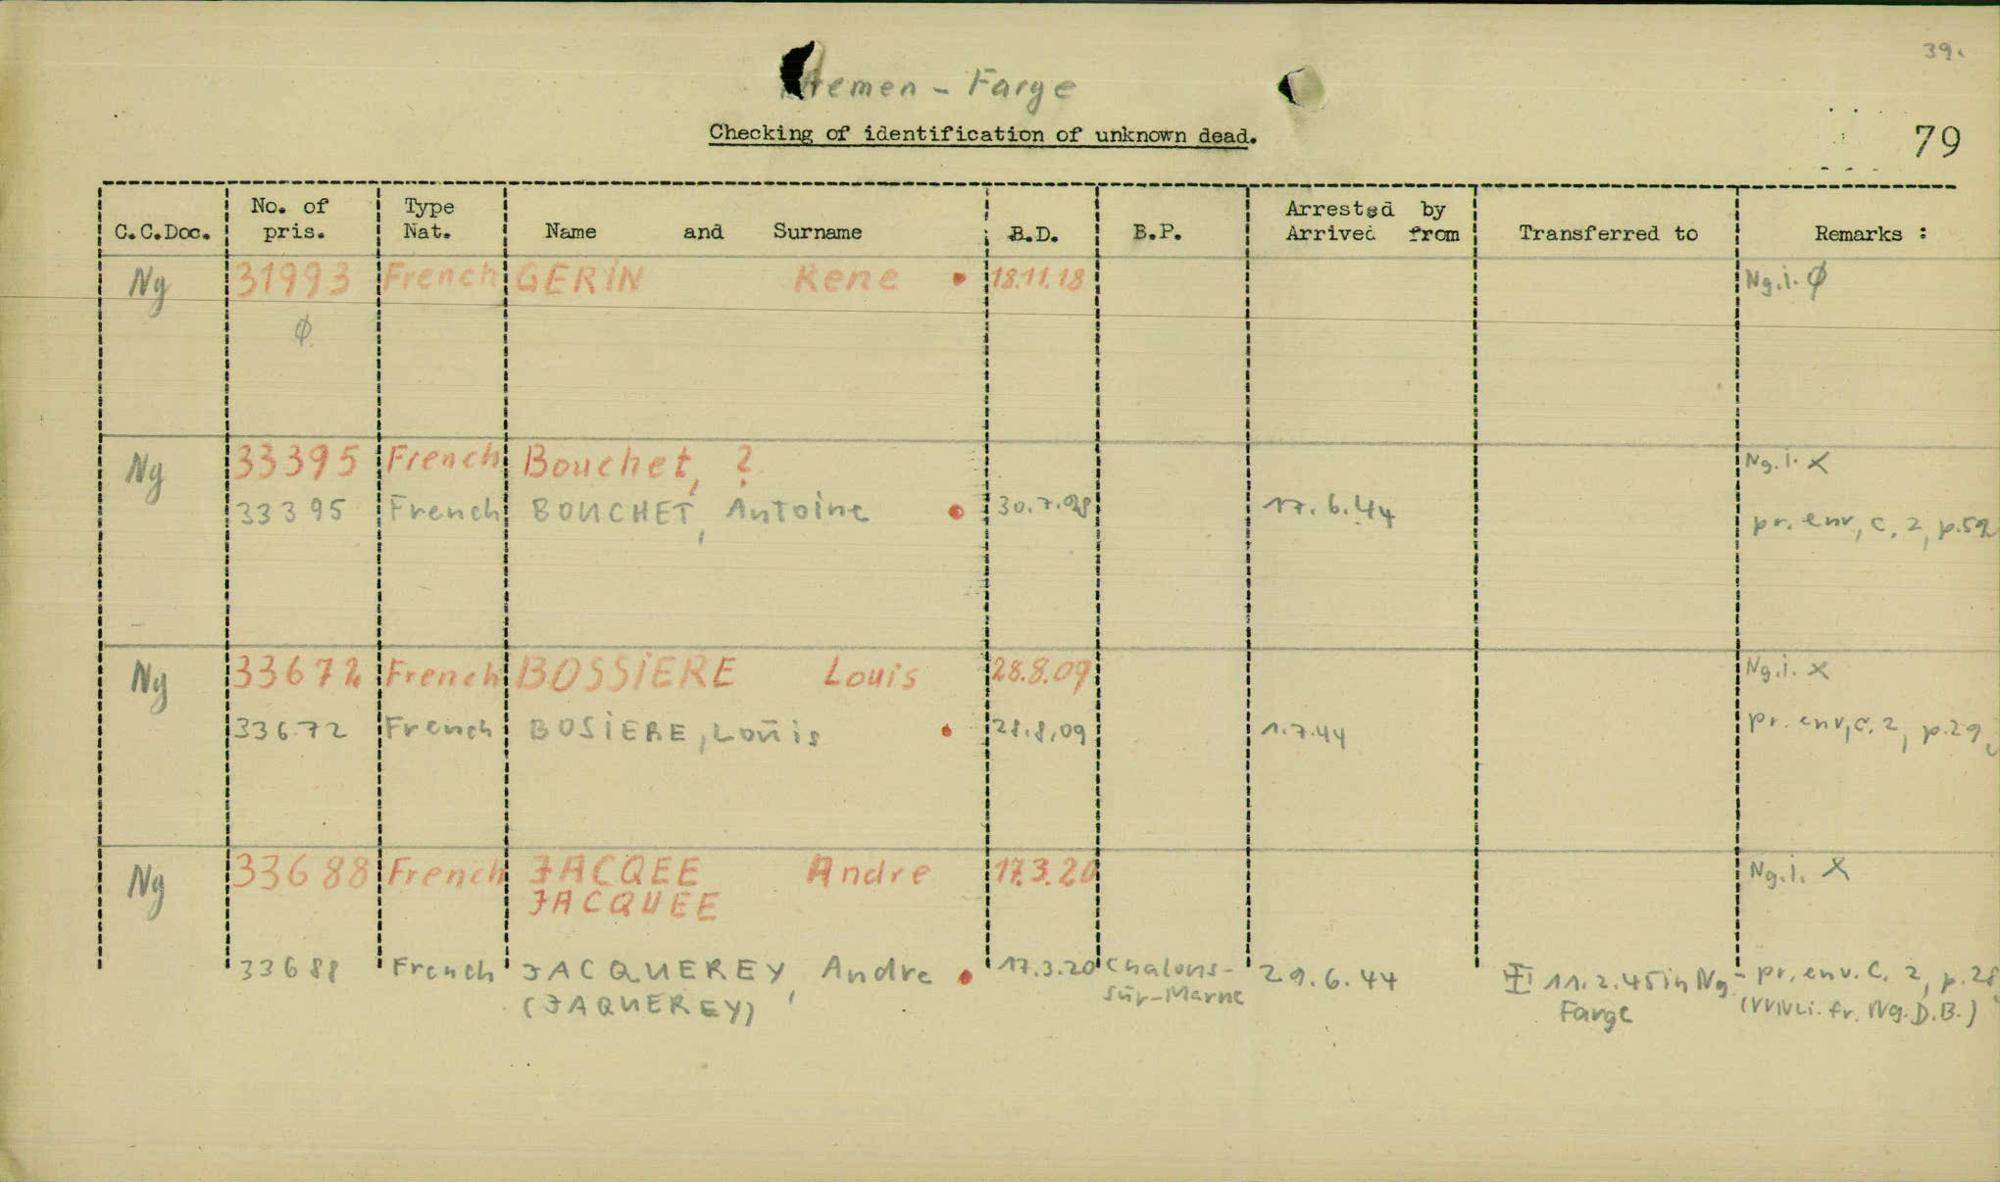 39.
Bremen - Farge
Checking of identification of unknown dead.
79
C.C.Doc. No. of pris. Type Nat. Name and Surname B.D. B.P. Arrested by Arrived from Transferred to Remarks :
Ng 31993 French GERIN Rene • 18.11.18 Ng.i. ∅
∅
Ng 33395 French Bouchet, ? Ng.i. x
33395 French BOUCHET, Antoine • 30.7.98 17.6.44 pr. env, c. 2, p.52
Ng 33672 French BOSSIERE Louis 28.8.09 Ng.i. x
33672 French BOSIERE, Louis • 28.8.09 1.7.44 pr. env, c. 2, p.29
Ng 33688 French JACQEE Andre 17.3.20 Ng.i. X
JACQUEE
33688 French JACQUEREY, Andre • 17.3.20 Chalons- 29.6.44 11.2.45 in Ng- pr. env. C. 2, p.28
(JAQUEREY) sur-Marne Farge fr. Ng. D.B.)